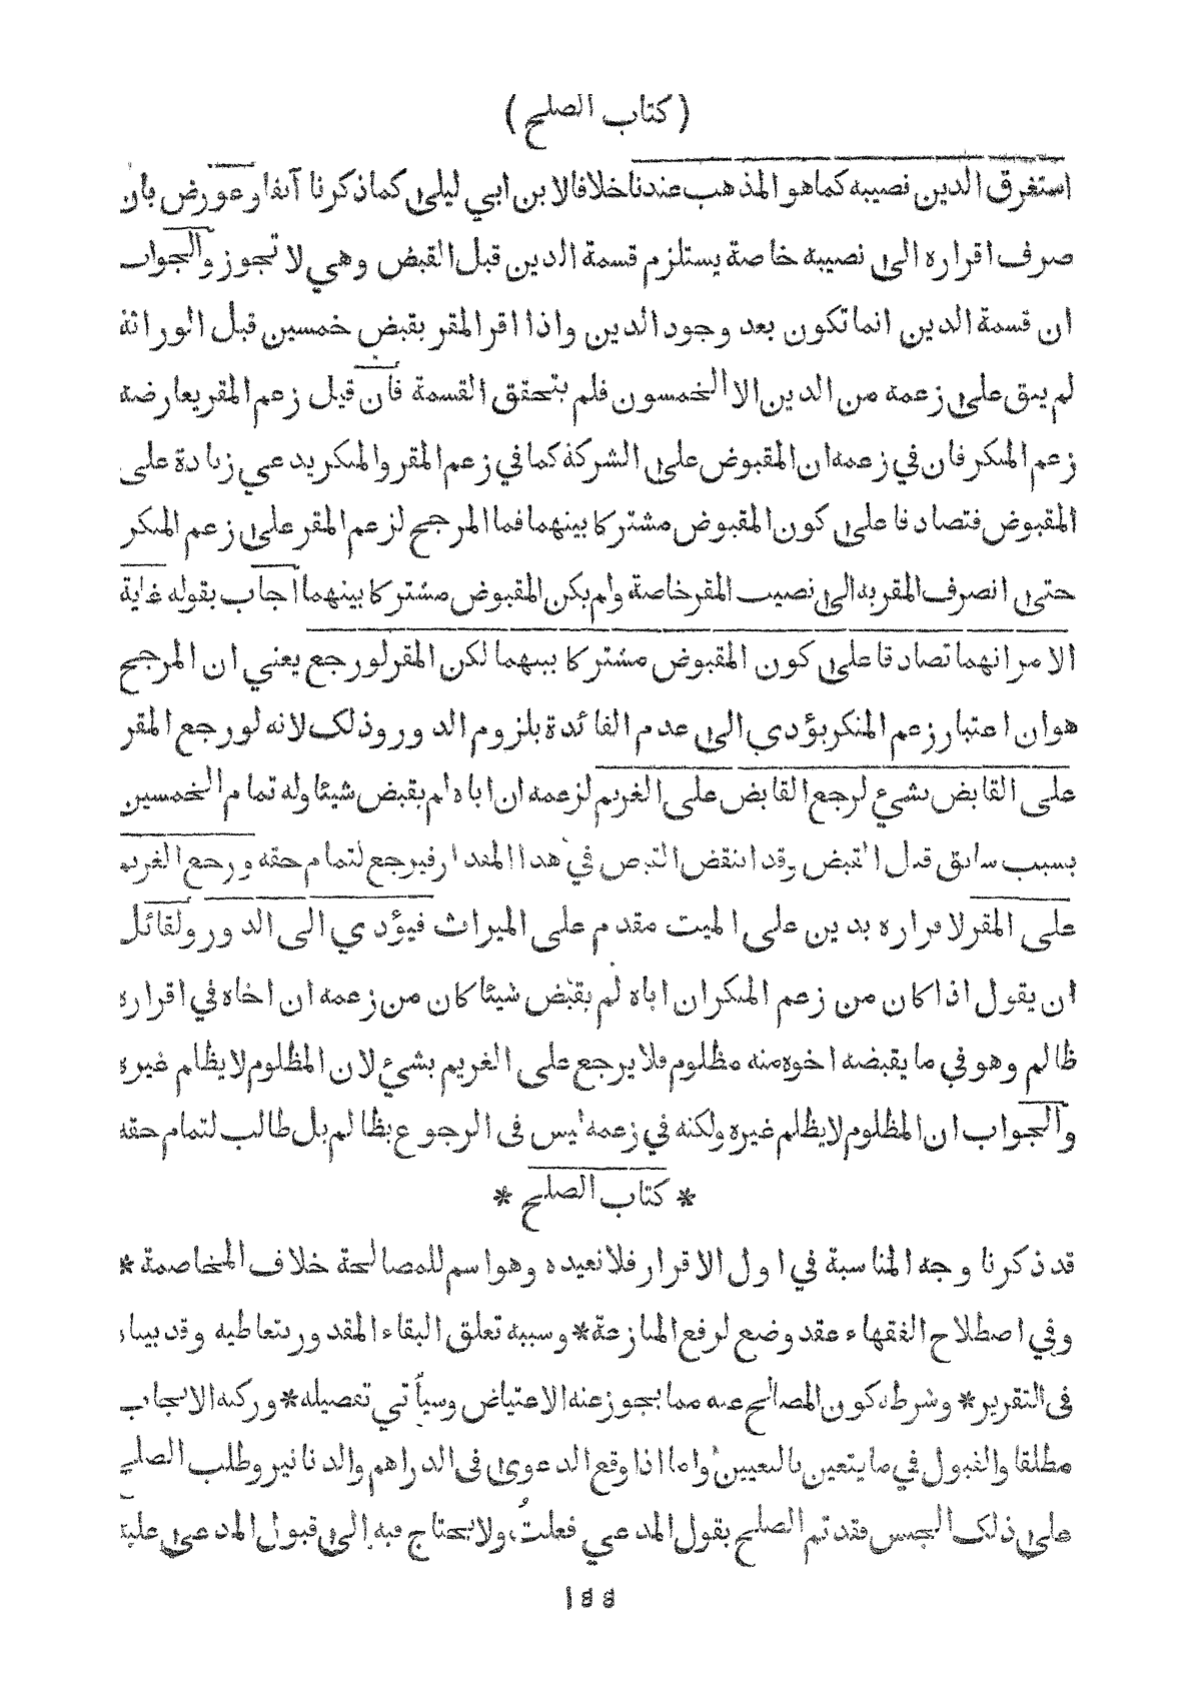 (كتاب الصلح)
استغرق الدين نصيبه كما هو المذهب عندنا خلافا لابن ابي ليلى كما ذكرنا آنفا وعورض بان
صرف اقراره الى نصيبه خاصة يستلزم قسمة الدين قبل القبض وهي لا تجوز والجواب
ان قسمة الدين انما تكون بعد وجود الدين واذا اقر المقر بقبض خمسين قبل الوراثة
لم يبق على زعمه من الدين الا الخمسون فلم يتحقق القسمة فان قيل زعم المقر يعارضه
زعم المنكر فان في زعمه ان المقبوض على الشركة كما في زعم المقر والمنكر يدعي زيادة على
المقبوض فتصادفا على كون المقبوض مشتركا بينهما فما المرجح لزعم المقر على زعم المنكر
حتى انصرف المقر به الى نصيب المقر خاصة ولم يكن المقبوض مشتركا بينهما اجاب بقوله غاية
الامر انهما تصادقا على كون المقبوض مشتركا بينهما لكن المقر لو رجع يعني ان المرجح
هو ان اعتبار زعم المنكر يؤدي الى عدم الفائدة بلزوم الدور وذلك لانه لو رجع المقر
على القابض بشيء لرجع القابض على الغريم لزعمه ان اباه لم يقبض شيئا وله تمام الخمسين
بسبب سابق قبل القبض وقد انتقض القبض في هذا المقدار فيرجع لتمام حقه ورجع الغريم
على المقر لاقراره بدين على الميت مقدم على الميراث فيؤدي الى الدور ولقائل
ان يقول اذا كان من زعم المنكر ان اباه لم يقبض شيئا كان من زعمه ان اخاه في اقراره
ظالم وهو في ما يقبضه اخوه منه مظلوم فلا يرجع على الغريم بشيء لان المظلوم لا يظلم غيره
والجواب ان المظلوم لا يظلم غيره ولكنه في زعمه ليس في الرجوع بظالم بل طالب لتمام حقه
* كتاب الصلح *
قد ذكرنا وجه المناسبة في اول الاقرار فلا نعيده وهو اسم للمصالحة خلاف المخاصمة *
وفي اصطلاح الفقهاء عقد وضع لرفع المنازعة * وسببه تعلق البقاء المقدور بتعاطيه وقد بيناه
في التقرير * وشرطه كون المصالح عنه مما يجوز عنه الاعتياض وسيأتي تفصيله * وركنه الايجاب
مطلقا والقبول في ما يتعين بالتعيين واما اذا وقع الدعوى في الدراهم والدنانير وطلب الصلح
على ذلك الجنس فقد تم الصلح بقول المدعي فعلت ولا يحتاج فيه الى قبول المدعى عليه
١٤٤